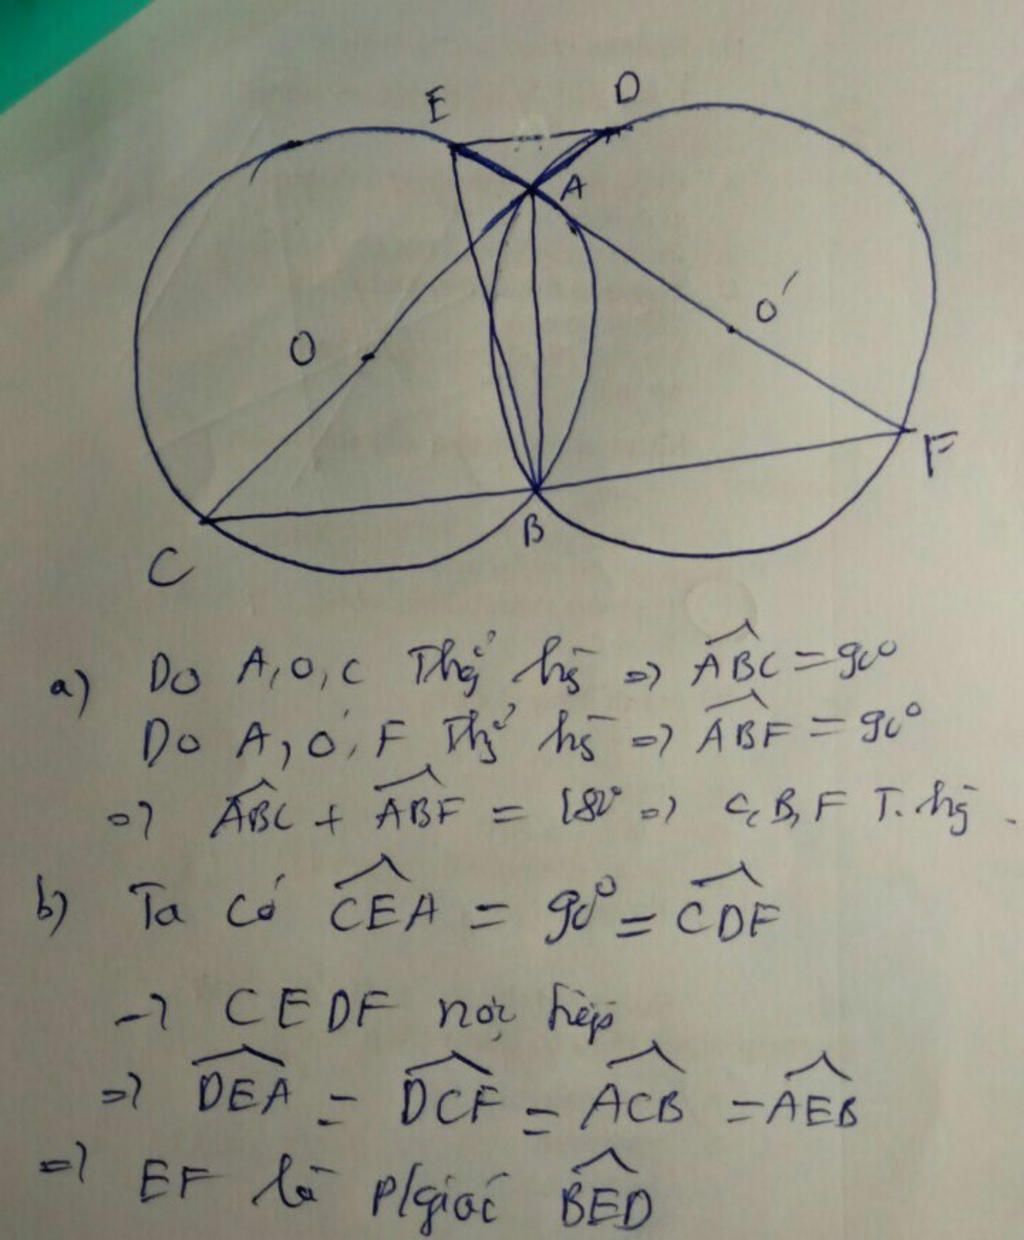 E
D
A
O
O'
F
B
C
a) Do A, O, C Thg̉ hg̀ => ABC = 90°
Do A, O', F Thg̉ hg̀ => ABF = 90°
=> ABC + ABF = 180° => C, B, F T. hg̀.
b) Ta có CEA = 90° = CDF
-> CEDF nội tiếp
=> DEA = DCF = ACB = AEB
=> EF là p/giác BED